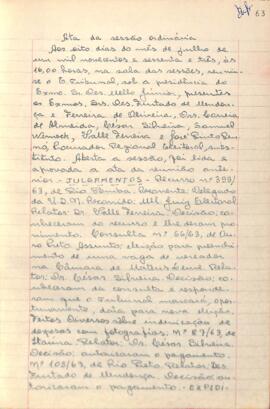 63
Ata da sessão ordinária
Aos oito dias do mês de julho de
um mil novecentos e sessenta e três, às
16,00 horas, na sala das sessões, reuniu-
se o Tribunal, sob a presidência do
Exmo. Sr. Des. Mello Júnior, presentes
os Exmos. Srs. Des. Furtado de Mendon-
ça e Ferreira de Oliveira, Drs. Corrêa
de Almeida, César Silveira, Samuel
Valle Ferreira e José
Procurador Regional Eleitoral, subs-
tituto. Aberta a sessão, foi lida e
aprovada a ata da reunião ante-
rior. - JULGAMENTOS - Recurso nº 399/
63, de Rio Pomba. Recorrente: Delegado
da U.D.N. Recorrido: MM. Juiz Eleitoral
Relator: Dr. Valle Ferreira. Decisão: co-
nheceram do recurso e lhe deram pro-
vimento. Consulta nº 66/63, de Ou-
ro Preto. Assunto: eleição para preenchi-
mento de uma vaga de vereador
na Câmara de Rela-
tor: Dr. César Silveira. Decisão: co-
nheceram da consulta e responde-
ram que o Tribunal marcará, opor-
tunamente, data para nova eleição.
Feitos Diversos sôbre indenização de
despesas com fotografias. nº 87/63, de
Itaúna. Relator: Dr. César Silveira.
Decisão: autorizaram o pagamento.
Nº 103/63, de Rio Preto. Relator: Des.
Furtado de Mendonça. Decisão: au-
torizaram o pagamento. -